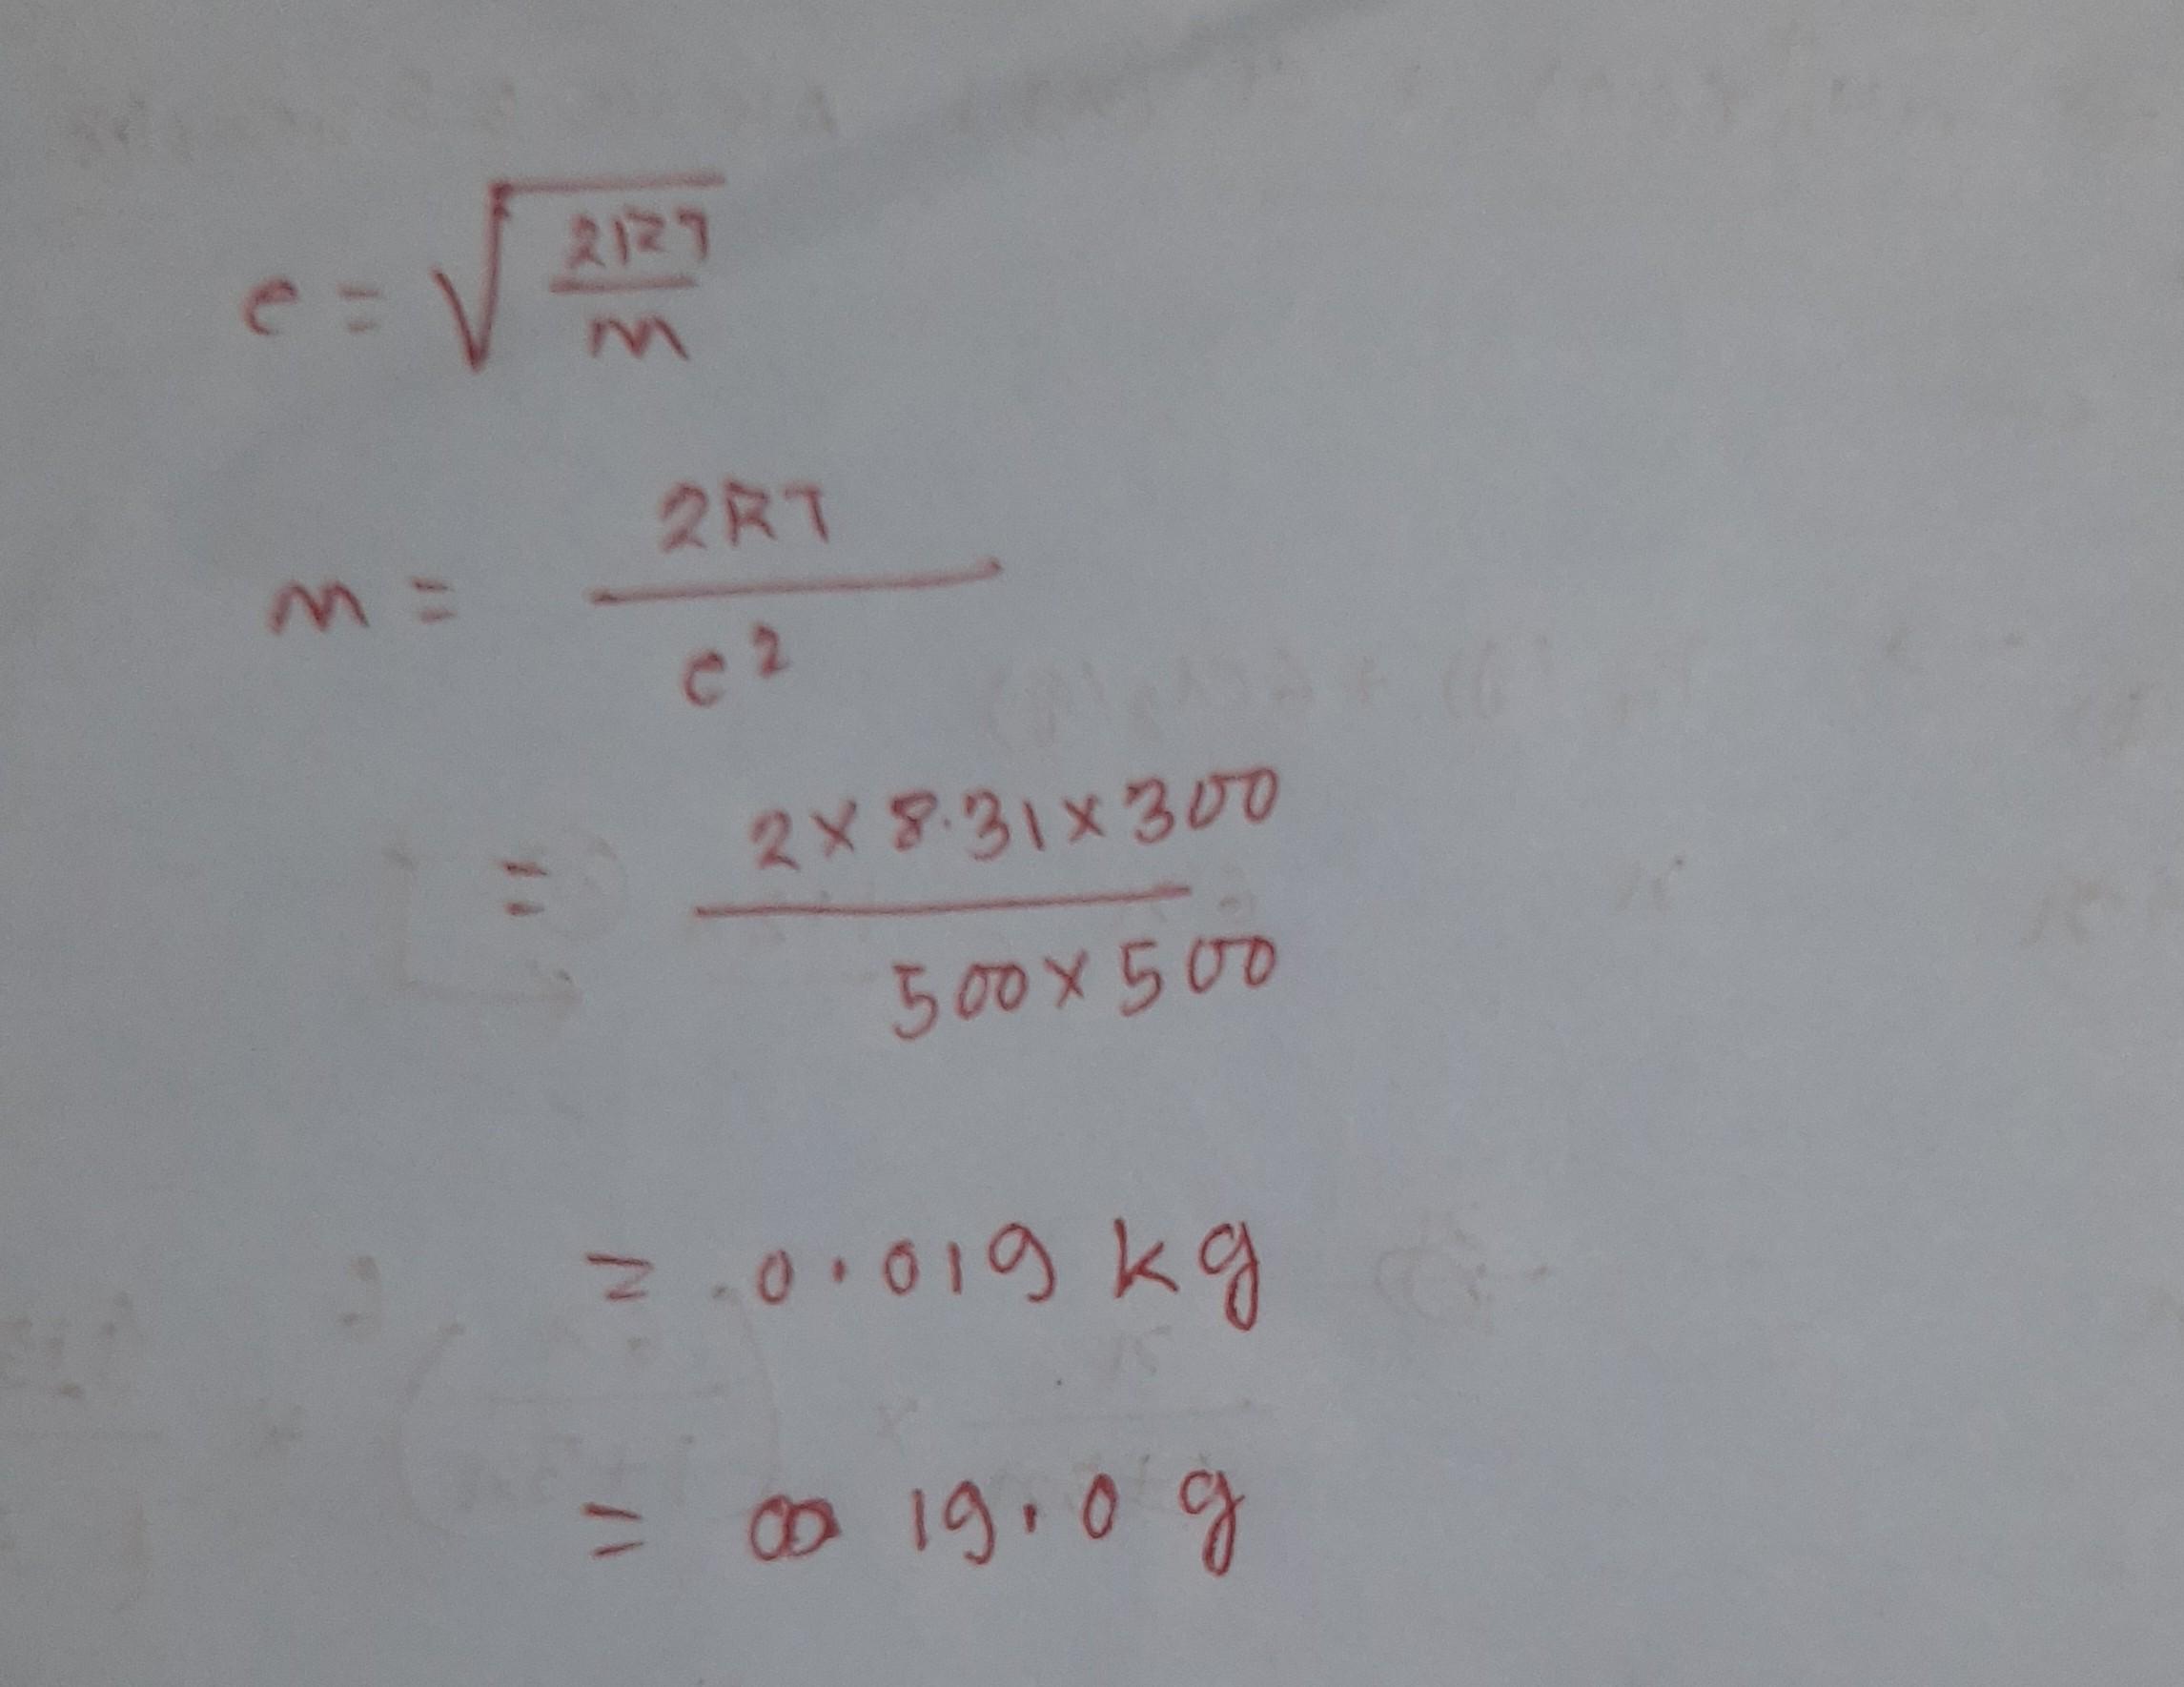 c = √(2RT/m)
m = 2RT/c²
= 2×8.31×300/500×500
= 0.019 kg
= 19.0 g